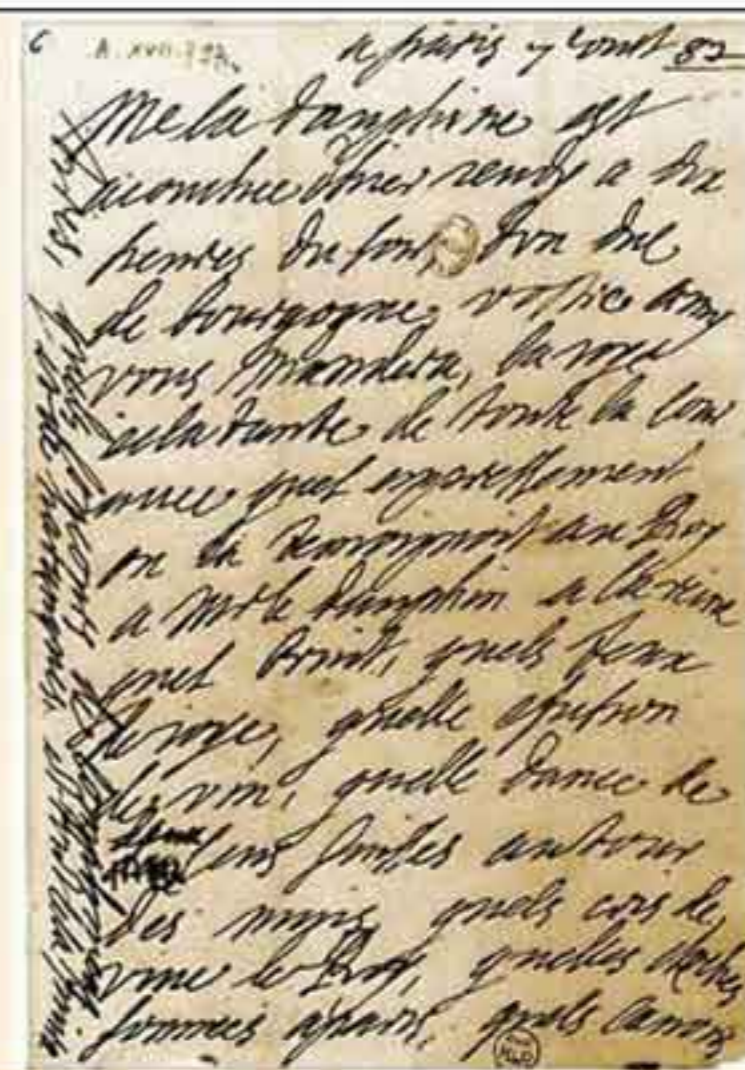 a paris 7 aoust 82
Me la dauphine est
acouchee hier jeudy a dix
heures du soir, d'un duc
de bourgogne, vostre amy
vous mandera, la joye
eclatante de toute la cour
avec quel enpressement
on la temoignoit au Roy
a Mr le dauphin a la reine
quel bruit, quels feux
de joye, quelle efusion
de vin, quelle dance de
cens suisses autour
des muis, quels cris de
vive le Roy, quelles cloches
sonnees a paris, quels canons